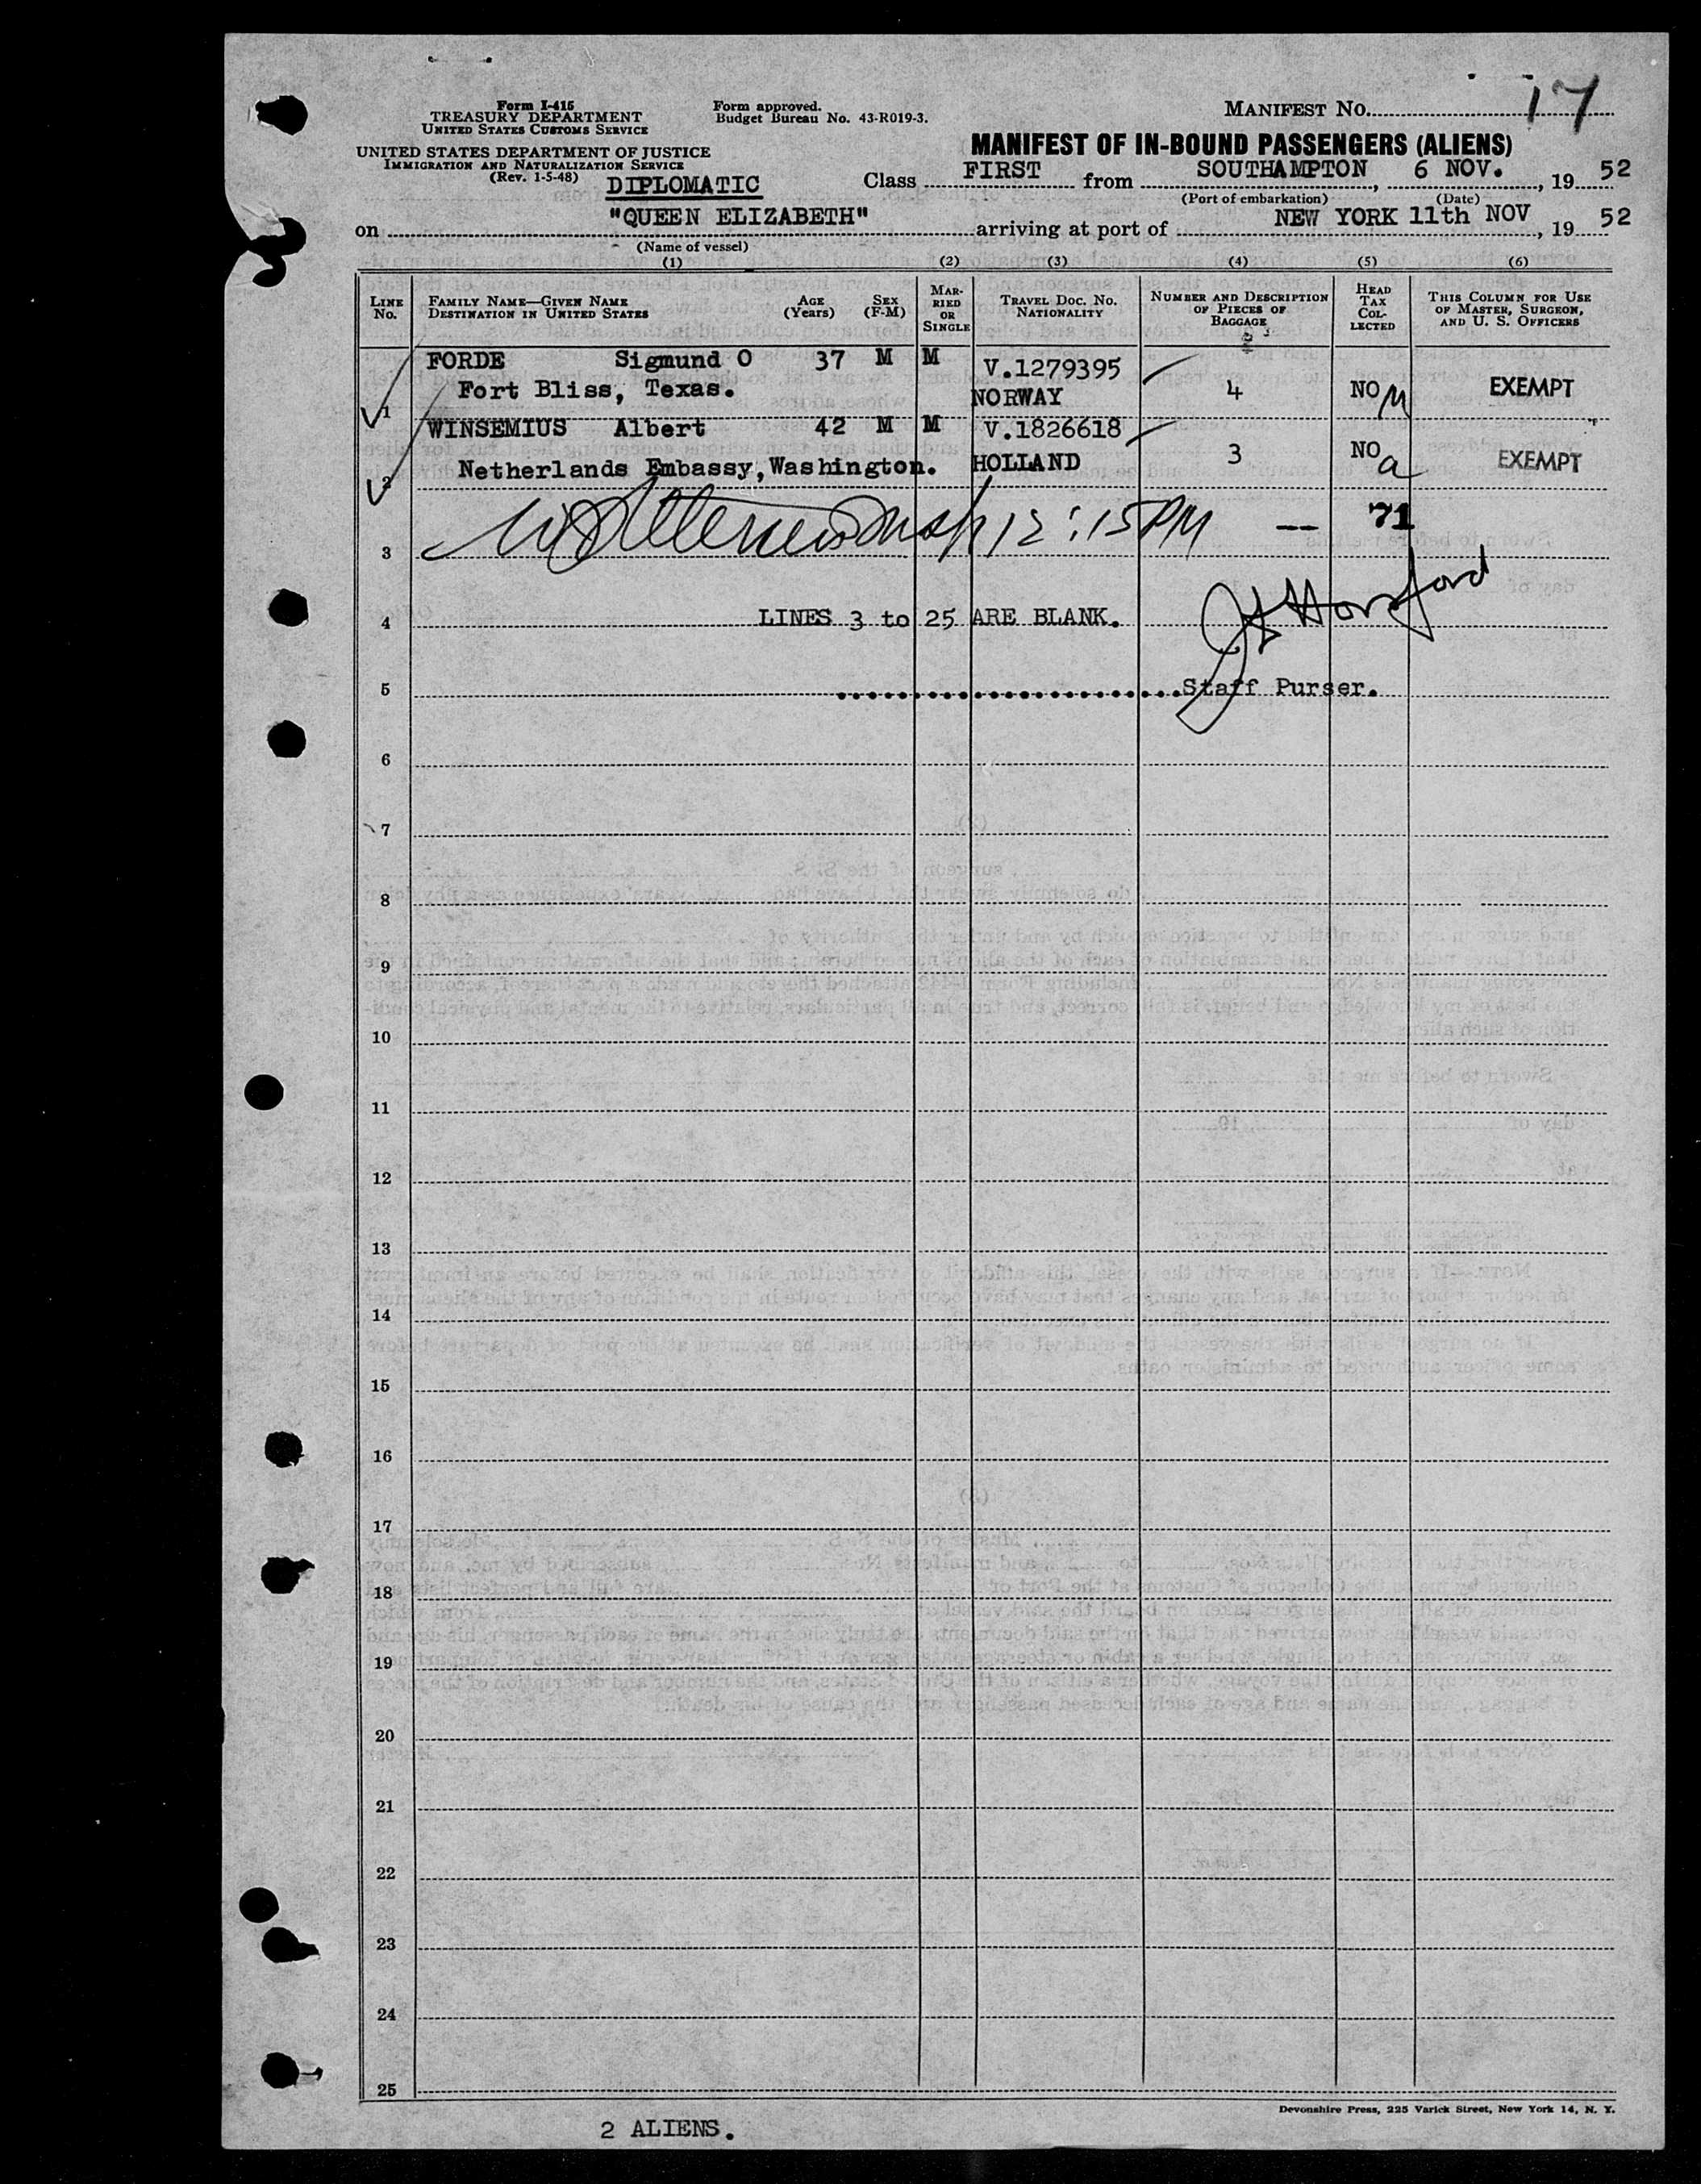 Form I-415
TREASURY DEPARTMENT
UNITED STATES CUSTOMS SERVICE
UNITED STATES DEPARTMENT OF JUSTICE
IMMIGRATION AND NATURALIZATION SERVICE
(Rev. 1-5-48)
Form approved.
Budget Bureau No. 43-R019-3.
MANIFEST NO. 17
MANIFEST OF IN-BOUND PASSENGERS (ALIENS)
DIPLOMATIC Class FIRST from SOUTHAMPTON, 6 NOV., 1952
(Port of embarkation) (Date)
on "QUEEN ELIZABETH" arriving at port of NEW YORK 11th NOV, 1952
(Name of vessel)
(1) (2) (3) (4) (5) (6)
LINE NO. FAMILY NAME—GIVEN NAME DESTINATION IN UNITED STATES AGE (Years) SEX (F-M) MARRIED OR SINGLE TRAVEL DOC. NO. NATIONALITY NUMBER AND DESCRIPTION OF PIECES OF BAGGAGE HEAD TAX COLLECTED THIS COLUMN FOR USE OF MASTER, SURGEON, AND U. S. OFFICERS
FORDE Sigmund O 37 M M V.1279395
1 Fort Bliss, Texas. NORWAY 4 NO EXEMPT
WINSEMIUS Albert 42 M M V.1826618
2 Netherlands Embassy, Washington. HOLLAND 3 NO EXEMPT
3 12:15PM — 71
4 LINES 3 to 25 ARE BLANK.
5 Staff Purser.
6
7
8
9
10
11
12
13
14
15
16
17
18
19
20
21
22
23
24
25
Devonshire Press, 225 Varick Street, New York 14, N. Y.
2 ALIENS.